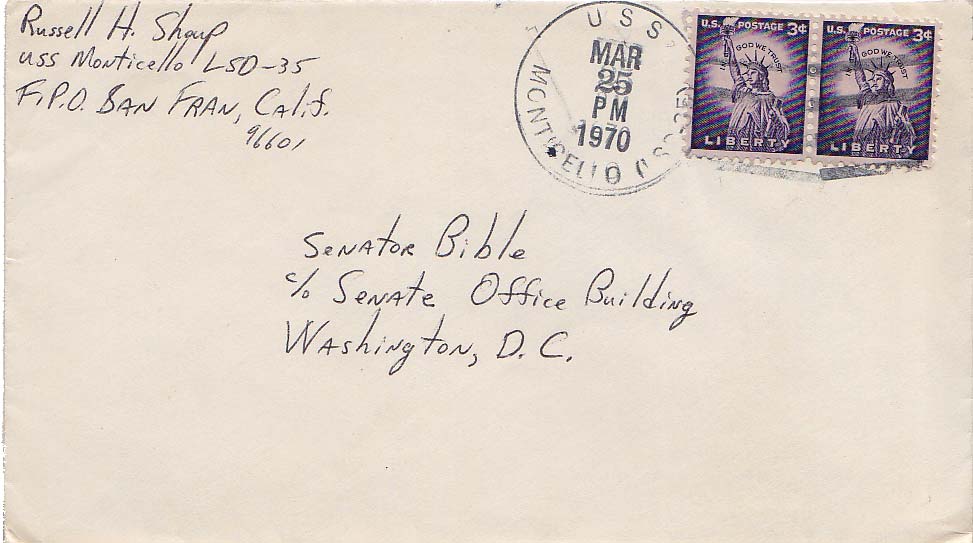 Russell H. Shoup
USS Monticello LSD-35
F.P.O. SAN FRAN, Calif.
96601
USS
MAR
25
PM
1970
MONTICELLO (LSD-35)
U.S. POSTAGE 3¢
IN GOD WE TRUST
LIBERTY
U.S. POSTAGE 3¢
IN GOD WE TRUST
LIBERTY
SENATOR Bible
c/o SENATE Office Building
WAshington, D.C.